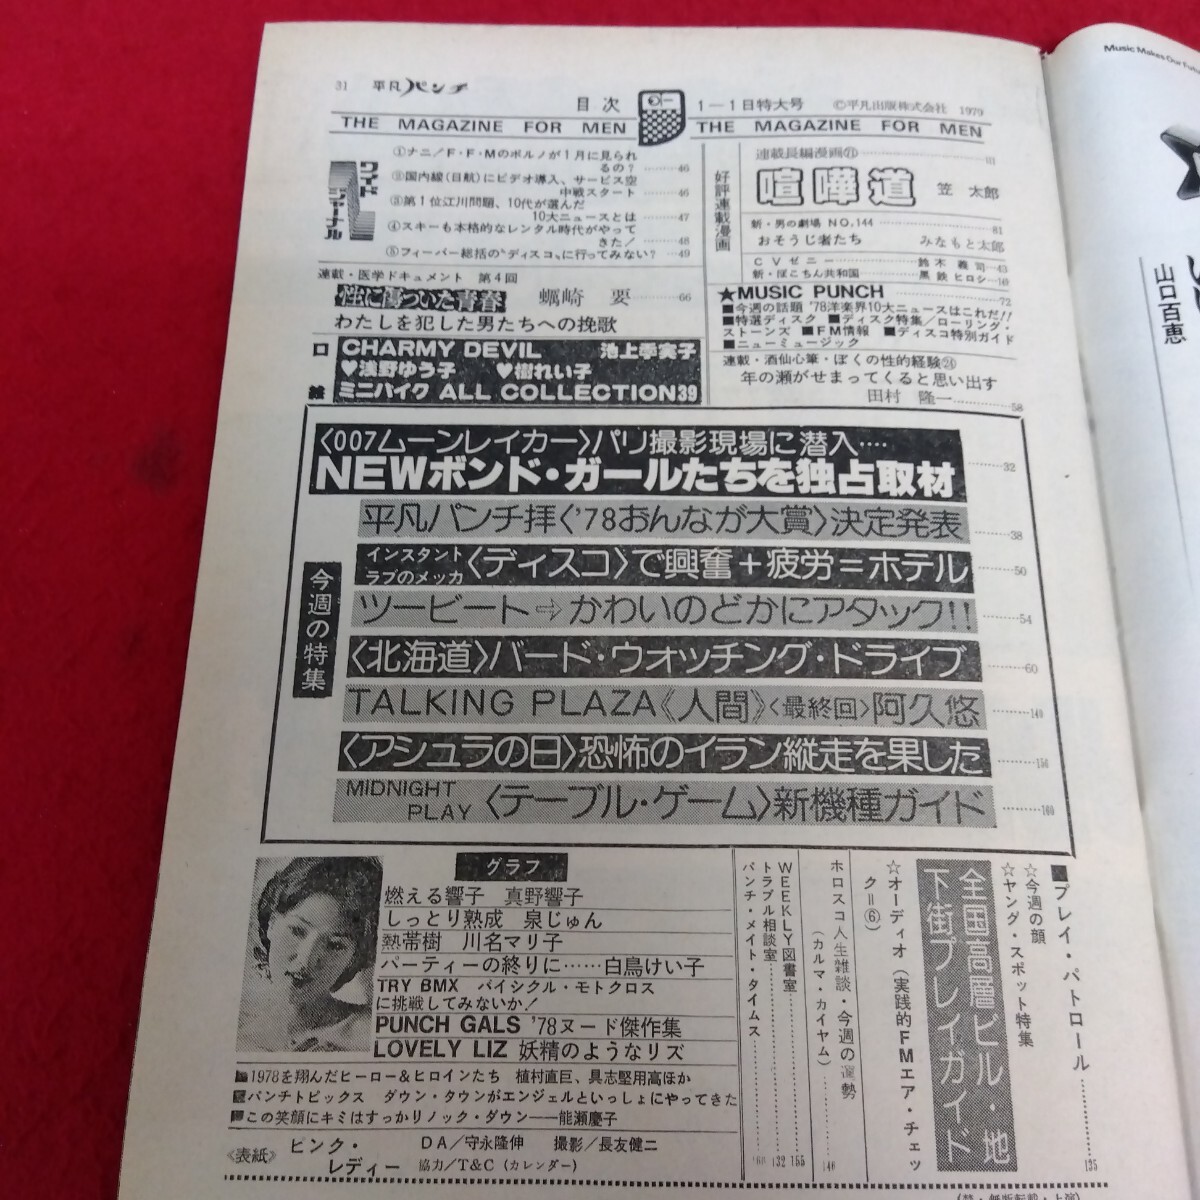 31 平凡パンチ
目次
1—1日特大号 ©平凡出版株式会社 1979
THE MAGAZINE FOR MEN
THE MAGAZINE FOR MEN
ワイド
ジャーナル
①ナニ/F・F・Mのポルノが1月に見られ
るの?……46
②国内線(日航)にビデオ導入、サービス空
中戦スタート……46
③第1位江川問題、10代が選んだ
10大ニュースとは……47
④スキーも本格的なレンタル時代がやって
きた!……48
⑤フィーバー総括の“ディスコ”に行ってみない?…49
連載・医学ドキュメント 第4回
性に傷ついた青春 蠣崎 要………66
わたしを犯した男たちへの挽歌
口絵
CHARMY DEVIL 池上季実子
♥浅野ゆう子 ♥樹れい子
ミニバイク ALL COLLECTION39
好評連載漫画
連載長編漫画㉑
喧嘩道 笠 太郎
新・男の劇場 NO.144……81
おそうじ者たち みなもと太郎
CVゼニー……鈴木義司…43
新・ぽこちん共和国……黒鉄ヒロシ…
★MUSIC PUNCH……72
■今週の話題 '78洋楽界10大ニュースはこれだ!!
■特選ディスク ■ディスク特集/ローリング・
ストーンズ ■FM情報 ■ディスコ特別ガイド
■ニューミュージック
連載・酒仙心筆・ぼくの性的経験㉔
年の瀬がせまってくると思い出す
田村 隆一……58
今週の特集
〈007ムーンレイカー〉パリ撮影現場に潜入‥‥
NEWボンド・ガールたちを独占取材……32
平凡パンチ拝〈'78おんなが大賞〉決定発表……38
インスタント
ラブのメッカ〈ディスコ〉で興奮+疲労=ホテル……50
ツービート⇨かわいのどかにアタック!!……54
〈北海道〉バード・ウオッチング・ドライブ……60
TALKING PLAZA《人間》〈最終回〉阿久悠……140
〈アシュラの日〉恐怖のイラン縦走を果した……156
MIDNIGHT
PLAY〈テーブル・ゲーム〉新機種ガイド……160
グラフ
燃える響子 真野響子
しっとり熟成 泉じゅん
熱帯樹 川名マリ子
パーティーの終りに……白鳥けい子
TRY BMX バイシクル・モトクロス
に挑戦してみないか!
PUNCH GALS '78ヌード傑作集
LOVELY LIZ 妖精のようなリズ
■1978を翔んだヒーロー&ヒロインたち 植村直巳、具志堅用高ほか
■パンチトピックス ダウン・タウンがエンジェルといっしょにやってきた
■この笑顔にキミはすっかりノック・ダウン——能瀬慶子
《表紙》ピンク・
レディー
DA/守永隆伸 撮影/長友健二
協力/T&C(カレンダー)
■プレイ・パトロール……135
☆今週の顔
☆ヤンダ・スポット特集
全国高層ビル・地
下街プレイガイド
☆オーディオ(実践的FMエア・チェッ
ク=⑥)
ホロスコ人生雑談・今週の運勢
(カルマ・カイヤム)……146
WEEKLY図書室……155
トラブル相談室……132
パンチ・メイト・タイムス……168
(禁・無断転載・上演)
Music Makes Our Futu
山口百恵